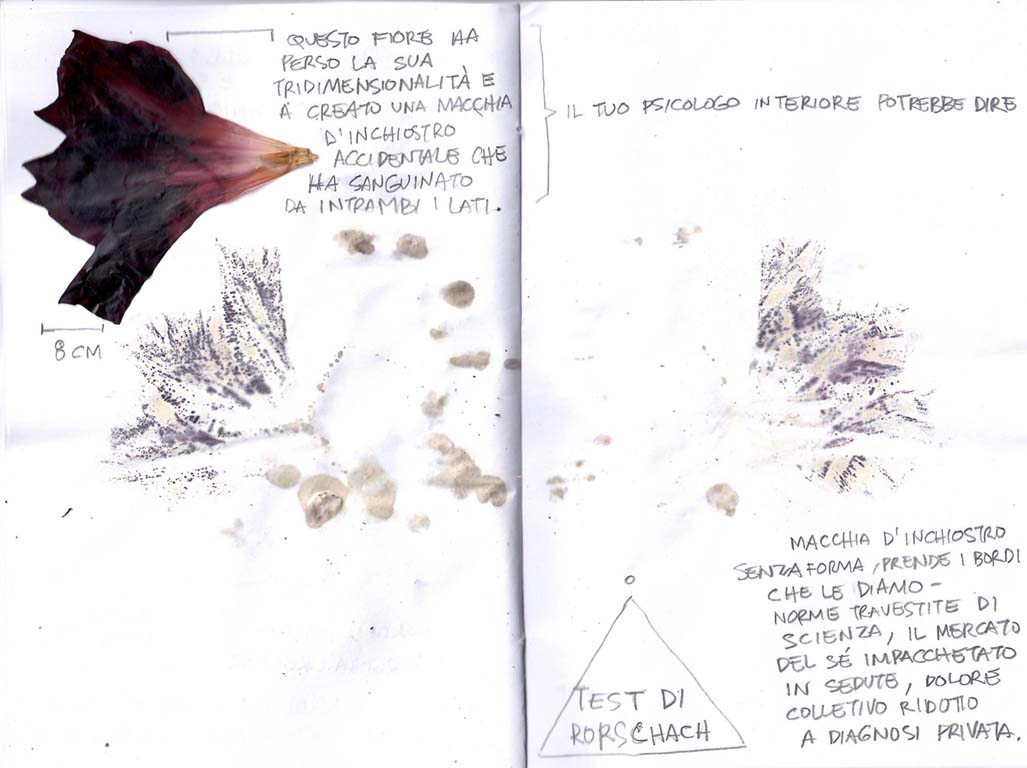 QUESTO FIORE HA
PERSO LA SUA
TRIDIMENSIONALITÀ E
À CREATO UNA MACCHIA
D'INCHIOSTRO
ACCIDENTALE CHE
HA SANGUINATO
DA INTRAMBI I LATI.
8 CM
IL TUO PSICOLOGO INTERIORE POTREBBE DIRE
MACCHIA D'INCHIOSTRO
SENZA FORMA, PRENDE I BORDI
CHE LE DIAMO –
NORME TRAVESTITE DI
SCIENZA, IL MERCATO
DEL SÉ IMPACCHETATO
IN SEDUTE, DOLORE
COLLETIVO RIDOTTO
A DIAGNOSI PRIVATA.
TEST DI
RORSCHACH